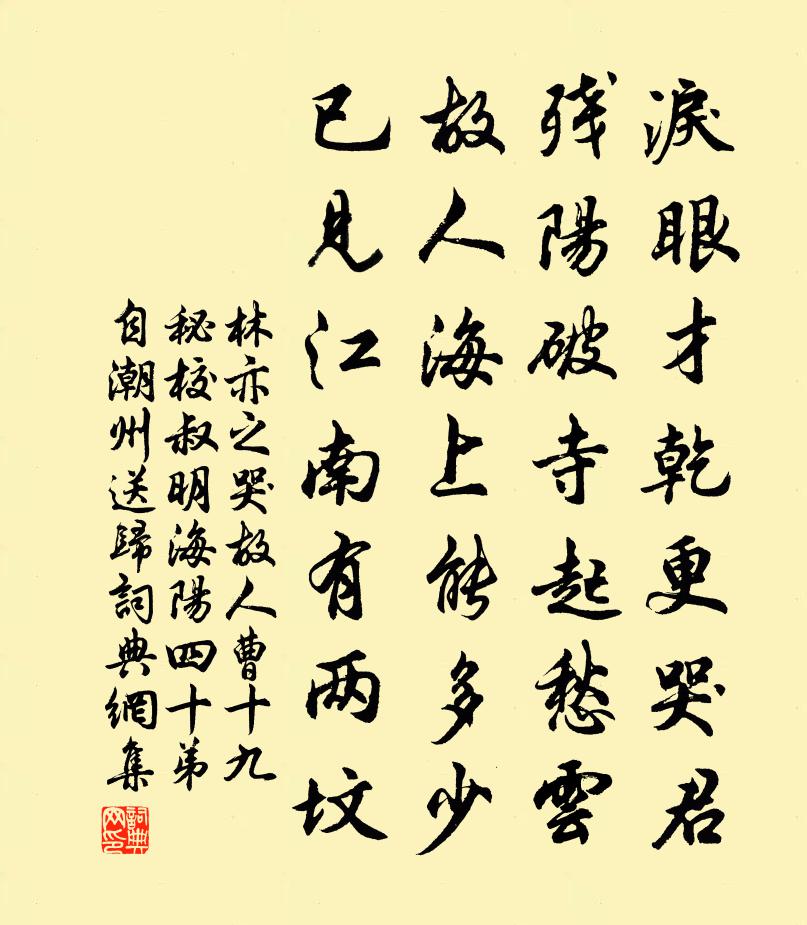 淚眼才乾更哭君
残陽破寺起愁雲
故人海上能多少
已見江南有两坟
林亦之哭故人曹十九
秘校叔明海陽四十弟
自潮州送歸詞典網集
詞典
网印